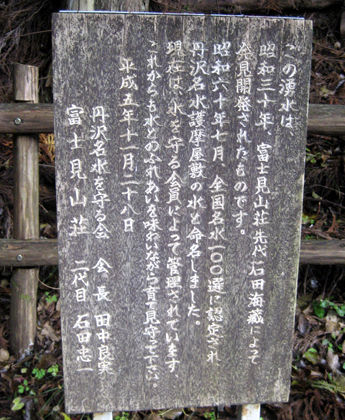 この湧水は
昭和三十年、富士見山荘先代石田海蔵によって
発見開発されたものです。
昭和六十年七月、全国名水一〇〇選に認定され
丹沢名水護摩屋敷の水と命名しました。
現在は、水を守る会員によって管理されています
これからも水とのふれあいを味わいながら育て見守って下さい。
平成五年十一月二十八日
丹沢名水を守る会 会長 田中良実
富士見山荘 二代目 石田忠一